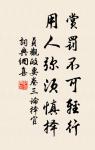 賞罰不可輕行
用人彌須慎擇
貞觀政要卷三論擇官
詞典網喜